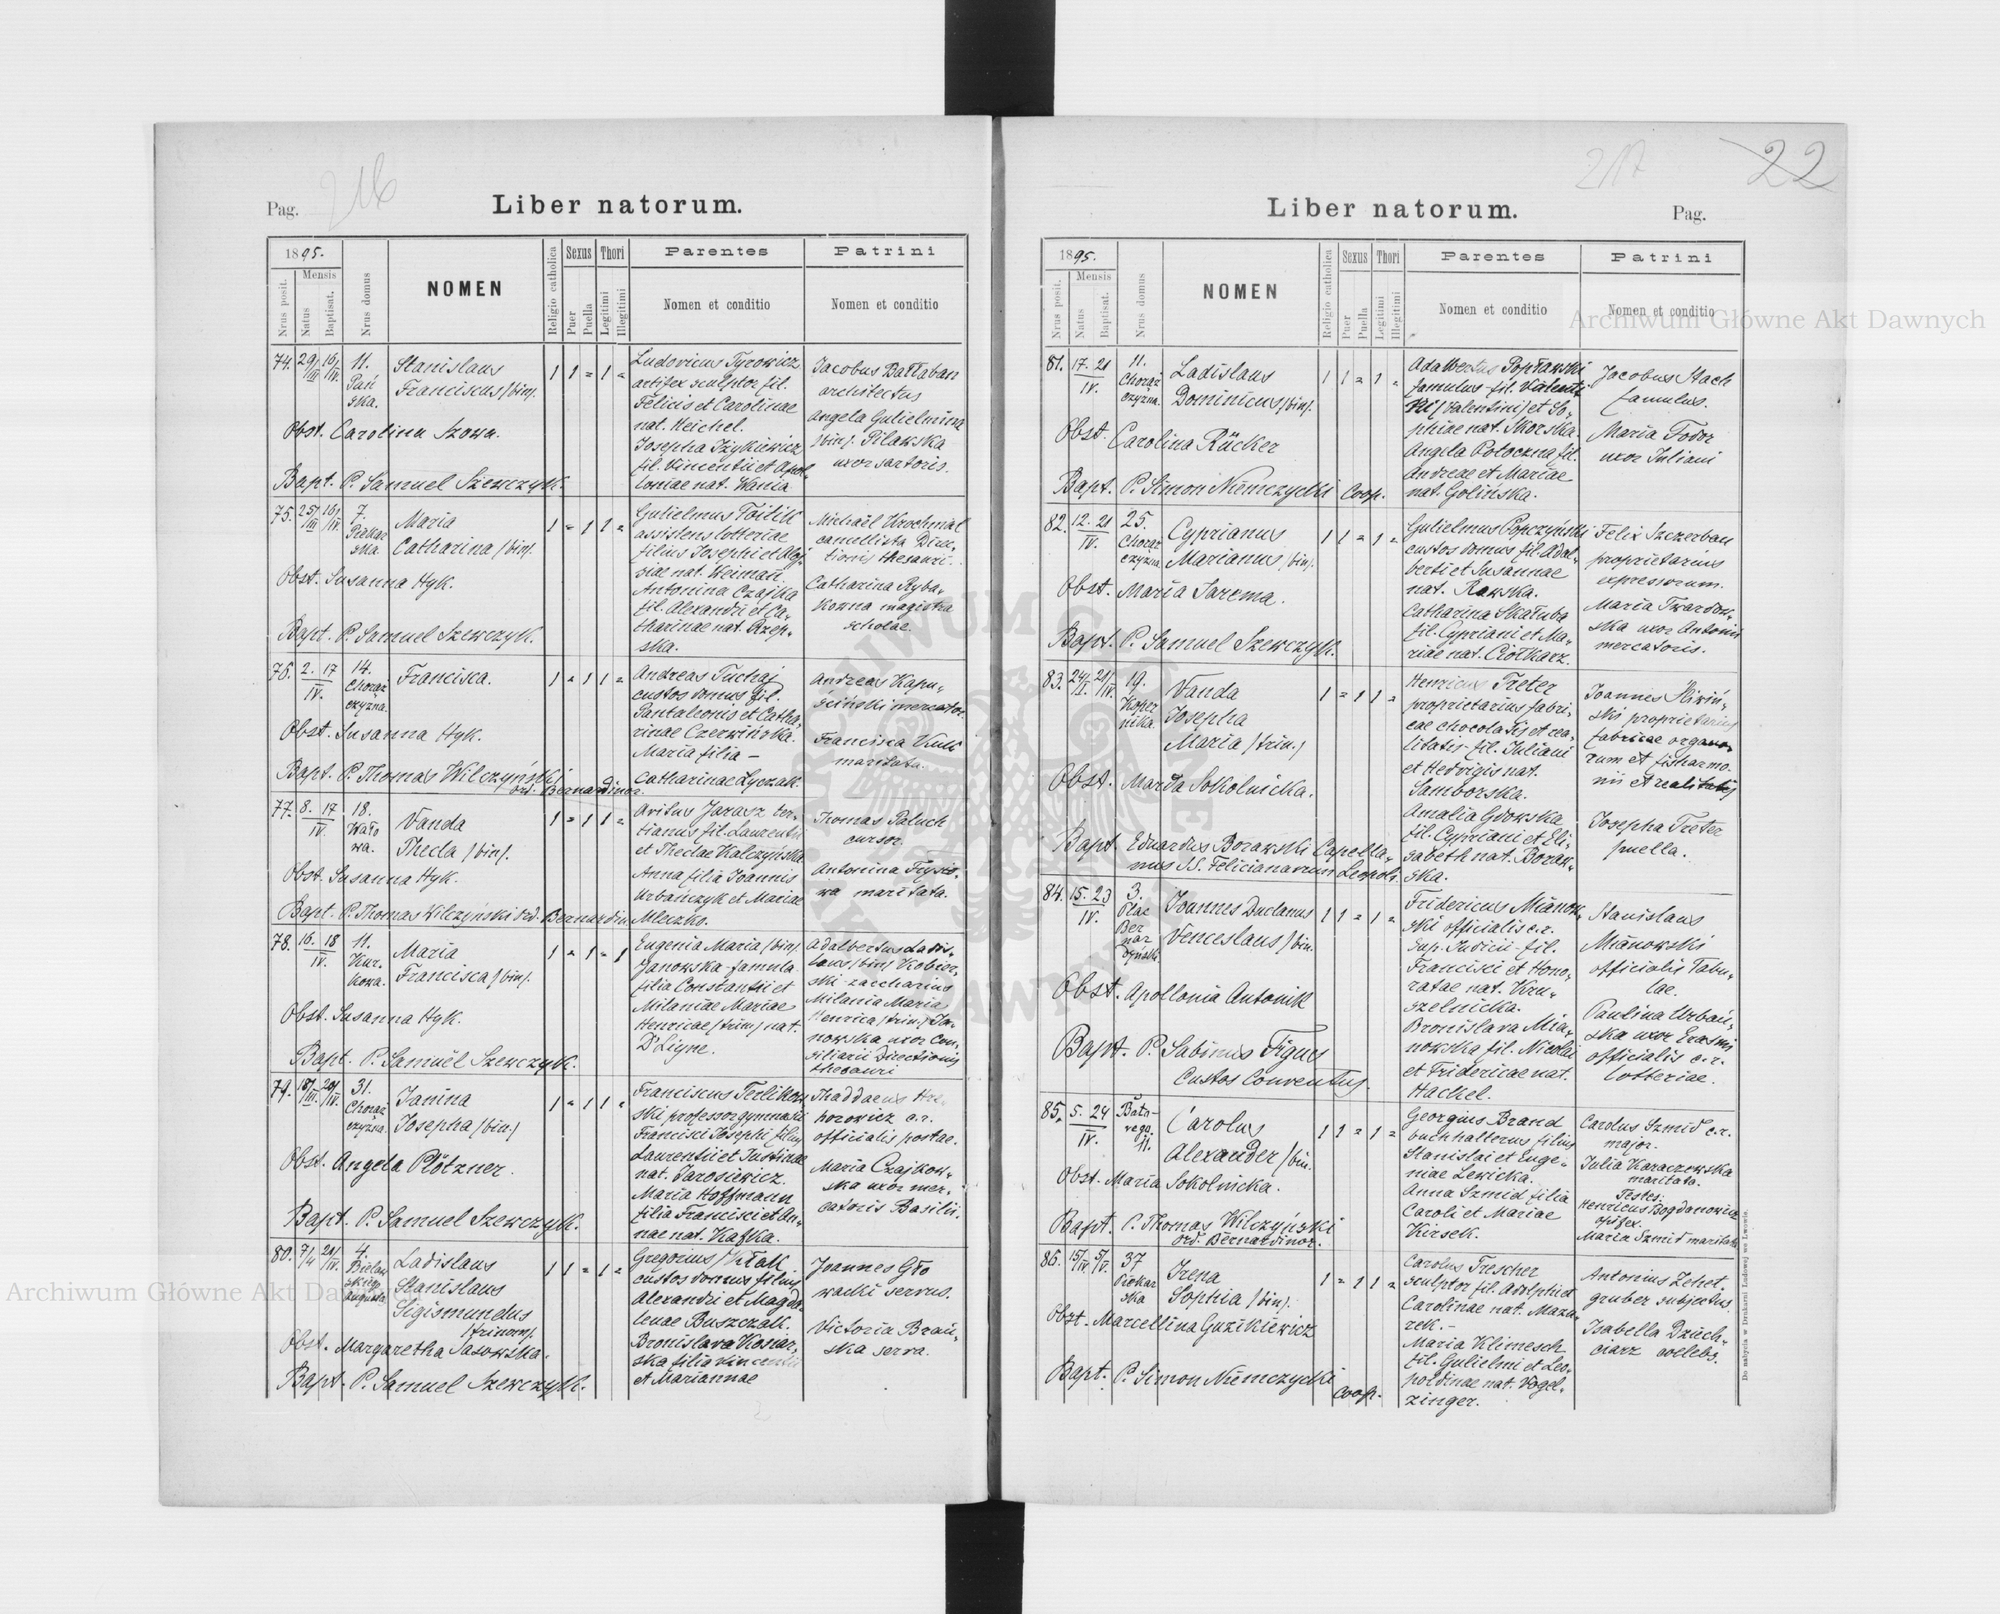 Pag. 216
Liber natorum.
1895.
Nrus posit.
Mensis
Natus
Baptisat.
Nrus domus
NOMEN
Religio catholica
Sexus
Puer
Puella
Thori
Legitimi
Illegitimi
Parentes
Nomen et conditio
Patrini
Nomen et conditio
74. 29/III 16/IV. 11. Pań
ska.
Stanislaus
Franciscus /bin/.
1 1 = 1 =
Obst. Carolina Szowa.
Bapt. P. Samuel Szewczyk.
Ludovicus Tyrowicz
artifex sculptor fil.
Felicis et Carolinae
nat. Heichel.
Josepha Iżykiewicz
fil. Vincentii et Apol-
loniae nat. Wania
Jacobus Bałaban
architectus
Angela Gulielmina
/bin/. Pilawska
uxor sartoris.
75. 25/III 16/IV. 7.
Piekar
ska.
Maria
Catharina /bin/.
1 = 1 1 =
Obst. Susanna Hyk.
Bapt. P. Samuel Szewczyk.
Gulielmus Foitik
assistens lotteriae
filius Josephi et Aloy-
siae nat. Weiman
Antonina Czajka
fil. Alexandri et Ca-
tharinae nat. Rzep-
ska.
Michaël Krochmal
cancellista Direc-
tionis thesauri.
Catharina Ryba-
kowna magistra
scholae.
76. 2. 17
IV.
14.
Chorąż
czyzna.
Francisca.
1 = 1 1 =
Obst. Susanna Hyk.
Bapt. P. Thomas Wilczyński
ord. Bernardinor.
Andreas Tuchaj
custos domus fil.
Pantaleonis et Catha-
rinae Czerwińska.
Maria filia —
Catharinae Łyczak.
Andreas Kapu-
ściński mercator.
Francisca Kulik
maritata.
77. 8. 17
IV.
18.
Wało
wa.
Vanda
Thecla /bin/.
1 = 1 1 =
Obst. Susanna Hyk.
Bapt. P. Thomas Wilczyński ord. Bernardin.
Avitus Jarasz ter-
tianus fil. Laurentii
et Theclae Kalczyńska
Anna filia Joannis
Urbańczyk et Mariae
Mleczko.
Thomas Paluch
cursor.
Antonina Frysio-
wa maritata.
78. 16. 18
IV.
11.
Kur-
kowa.
Maria
Francisca /bin/.
1 = 1 = 1
Obst. Susanna Hyk.
Bapt. P. Samuel Szewczyk.
Eugenia Maria /bin/
Janowska famula
filia Constantii et
Milaniae Mariae
Henricae /trin./ nat.
D'Ligne.
Adalbertus Ladis-
laus /bin/ Kobier-
ski zaccharius
Milania Maria
Henrica /trin./ Ja-
nowska uxor Con-
siliarii Directionis
thesauri
79. 18/III. 20/IV. 31.
Chorąż
czyzna.
Janina
Josepha /bin./
1 = 1 1 =
Obst. Angela Plötzner.
Bapt. P. Samuel Szewczyk.
Franciscus Terlikow
ski professor gymnasii
Francisci Josephi filius
Laurentii et Justinae
nat. Jarosiewicz.
Maria Hoffmann
filia Francisci et An-
nae nat. Kafka.
Thaddaeus Hre-
horowicz c.r.
officialis postae.
Maria Czajkow-
ska uxor mer-
catoris Basilii.
80. 7/4 20/IV. 4.
Bielow
skiego
Augusta.
Ladislaus
Stanislaus
Sigismundus
/trinom/.
1 1 = 1 =
Obst. Margaretha Sasowska.
Bapt. P. Samuel Szewczyk.
Gregorius
custos domus filius
Alexandri et Magda
lenae Buszczak.
Bronislava Kosiar-
ska filia Vincentii
et Mariannae
Joannes Gło
wacki servus.
Victoria Brań-
ska serva.
217 22
Liber natorum.
Pag.
1895.
Nrus posit.
Mensis
Natus
Baptisat.
Nrus domus
NOMEN
Religio catholica
Sexus
Puer
Puella
Thori
Legitimi
Illegitimi
Parentes
Nomen et conditio
Patrini
Nomen et conditio
81. 17. 21
IV.
11.
Chorąż
czyzna.
Ladislaus
Dominicus /bin/.
1 1 = 1 =
Obst. Carolina Rücker
Bapt. P. Simon Niemczycki Coop.
Adalbertus Popławski
famulus fil. Valenti
ni /Valentini/ et So-
phiae nat. Skorska.
Angela Połoczna fil.
Andreae et Mariae
nat. Golińska.
Jacobus Stach
famulus.
Maria Fodor
uxor Juliani
82. 12. 21
IV.
25.
Chorąż
czyzna
Cyprianus
Marianus /bin/.
1 1 = 1 =
Obst. Maria Jarema.
Bapt. P. Samuel Szewczyk.
Gulielmus Popczyński
custos domus fil. Adal-
berti et Susannae
nat. Rawska.
Catharina Skałuba
fil. Cypriani et Ma-
riae nat. Ciołkarz.
Felix Szczerban
proprietarius
expressorum.
Maria Twardow-
ska uxor Antonii
mercatoris.
83. 24/II. 21/IV. 19.
Koper
nika.
Vanda
Josepha
Maria /trin./
1 = 1 1 =
Obst. Maria Sokolnicka.
Bapt. Eduardus Borawski Capella-
nus SS. Felicianarum Leopoli.
Henricus Treter
proprietarius fabri-
cae chocolatis et rea-
litatis fil. Juliani
et Hedvigis nat.
Samborska.
Amalia Gdowska
fil. Cypriani et Eli-
sabeth nat. Boraw-
ska.
Joannes Śliwiń-
ski proprietarius
fabricae organo-
rum et fisharmo-
nii et realitatis
Josepha Treter
puella.
84. 15. 23
IV.
3.
Plac
Ber
nar
dyński
Joannes Duclanus
Venceslaus /bin.
1 1 = 1 =
Obst. Apollonia Antonik
Bapt. P. Sabinus Figus
Custos Conventus.
Fridericus Mianow-
ski officialis c.r.
Sup. Judicii fil.
Francisci et Hono-
ratae nat. Kru-
szelnicka.
Bronislava Mia-
nowska fil. Nicolai
et Fridericae nat.
Hackel.
Stanislaus
Mianowski
officialis Tabu-
lae.
Paulina Urbań-
ska uxor Erasmi
officialis c.r.
lotteriae.
85. 5. 24
IV.
Bato-
rego.
11.
Carolus
Alexander /bin.
1 1 = 1 =
Obst. Maria Sokolnicka.
Bapt. P. Thomas Wilczyński
ord. Bernardinor.
Georgius Brand
buchhalterus filius
Stanislai et Euge-
niae Lewicka.
Anna Szmid filia
Caroli et Mariae
Kirsek.
Carolus Szmid c.r.
major.
Julia Karaczewska
maritata.
Testes:
Henricus Bogdanowicz
opifex.
Maria Szmid maritata.
86. 15/IV. 5/V. 37
Piekar
ska
Irena
Sophia /bin/.
1 = 1 1 =
Obst. Marcellina Guzikiewicz
Bapt. P. Simon Niemczycki
Coop.
Carolus Trescher
sculptor fil. Adolphi et
Carolinae nat. Mazu-
rek. —
Maria Klimesch
fil. Gulielmi et Leo-
poldinae nat. Vogel-
zinger.
Antonius Zehet-
gruber subjectus.
Isabella Dziech-
ciarz coelebs.
Do nabycia w Drukarni Ludowej we Lwowie.
Archiwum Główne Akt Dawnych
Archiwum Główne Akt Dawnych